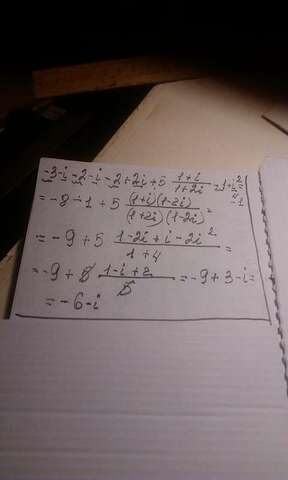 -3-i-2-i-2+2i+5 (1+i)/(1+2i) = 1+i²=
= -8-1+5 ((1+i)(1-2i))/((1+2i)(1-2i)) =
= -9+5 (1-2i+i-2i²)/(1+4) =
= -9+5 (1-i+2)/5 = -9+3-i=
= -6-i